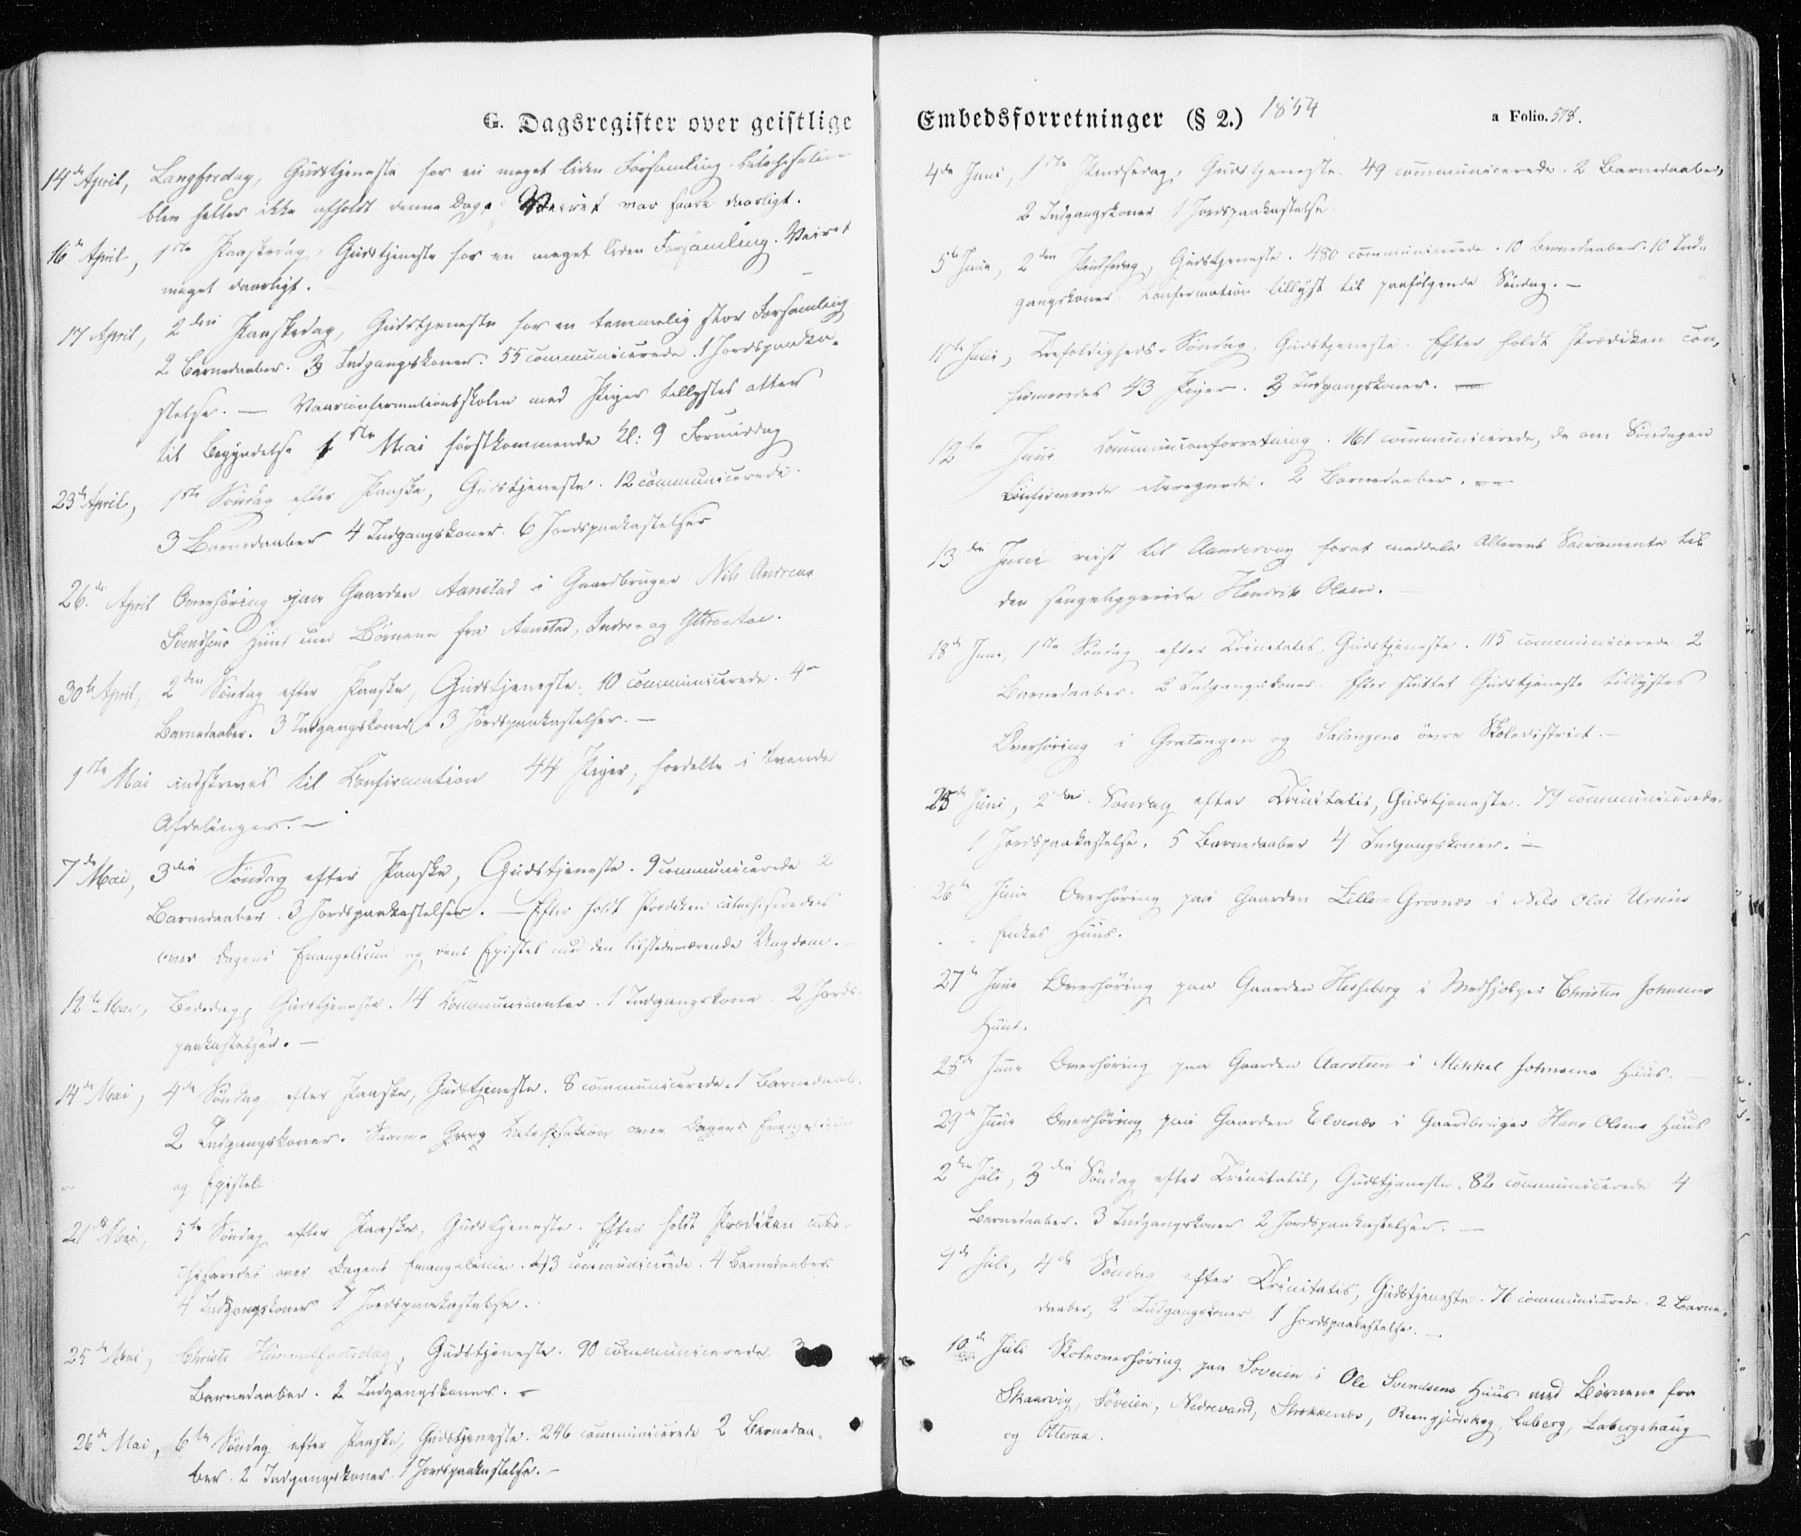 G. Dagsregister over geistlige
14de April, Langfredag, Gudstjeneste for en meget liden Forsamling.
blev heller ikke afholdt denne Dag. Veiret var saare daarligt.
16de April, 1ste Paaskedag, Gudstjeneste for en meget liden Forsamling. Veiret
meget daarligt. —
17 April, 2den Paaskedag, Gudstjeneste for en temmelig stor Forsamling
2 Barnedaaber. 3 Indgangskoner. 55 communicerede. 1 Jordspaaka-
stelse. — Vaarconfirmationsskolen med Piger tillystes atter
til Begyndelse 1ste Mai førstkommende Kl: 9 Formiddag
23de April, 1ste Søndag efter Paaske, Gudstjeneste. 12 communicerede.
3 Barnedaaber 4 Indgangskoner. 6 Jordspaakastelser
26de April Overhøring paa Gaarden Aanstad i Gaardbruger Nils Andreas
Svendsens Huus med Børnene fra Aanstad, Indre- og
30te April, 2den Søndag efter Paaske, Gudstjeneste. 10 communicerede. 4
Barnedaaber. 3 Indgangskoner. 3 Jordspaakastelser. —
1ste Mai indskreves til Confirmation 44 Piger, fordelte i tvende
Afdelinger. —
7de Mai, 3die Søndag efter Paaske, Gudstjeneste. 9 communicerede 2
Barnedaaber. 3 Jordspaakastelser. — Efter holdt Prædiken catechiseredes
over Dagens Evangelium og dens Epistel med den tilstedeværende Ungdom. —
12te Mai, Bededag, Gudstjeneste. 14 Communicanter. 1 Indgangskone. 2 Jords-
paakastelser. —
14de Mai, 4de Søndag efter Paaske, Gudstjeneste. 8 communicerede. 1 Barnedaab.
2 Indgangskoner. Catechisation over Dagens Evangelium
og Epistel
21de Mai, 5te Søndag efter Paaske, Gudstjeneste. Efter holdt Prædiken cate-
chiseredes over Dagens Evangelium. communicerede. 4 Barnedaaber
4 Indgangskoner 1 Jordspaakastelse.
25de Mai, Christi Himmelfartsdag, Gudstjeneste. 90 communicerede 3
Barnedaaber. 2 Indgangskoner. —
26de Mai, 6te Søndag efter Paaske, Gudstjeneste. 246 communicerede 2 Barnedaa-
ber. 2 Indgangskoner 1 Jordspaakastelse. —
Embedsforretninger (§ 2.) 1854
a Folio. 578.
4de Juni, 1ste Pindsedag, Gudstjeneste. 49 communicerede. 2 Barnedaaber,
2 Indgangskoner 1 Jordspaakastelse.
5te Juni, 2den Pindsedag, Gudstjeneste. 480 communicerede. 10 Barnedaaber. 10 Ind-
gangskoner. Confirmation tillyst til paafølgende Søndag. —
11te Juni, Trefoldigheds-Søndag, Gudstjeneste. Efter holdt Prædiken con-
firmeredes 43 Piger. 3 Indgangskoner. —
12te Juni Communionforretning. 161 communicerede, de om Søndagen
Confirmerede iberegnede. 2 Barnedaaber. —
13de Juni reist til Aandervaag fornt meddele Alterens Sacramente til
den sengeliggende Henrik Olsen. —
18de Juni, 1ste Søndag efter Trinitatis, Gudstjeneste. 115 communicerede 2
Barnedaaber. 2 Indgangskoner. Efter sluttet Gudstjeneste tillystes
Overhøring i Gratangen og Salangens øvre Skoledistrict. —
25de Juni, 2den Søndag efter Trinitatis, Gudstjeneste. 79 communicerede.
1 Jordspaakastelse. 5 Barnedaaber 4 Indgangskoner. —
26de Juni Overhøring paa Gaarden Lille-Grovnæs i Nils Olai Ursins
Enkes Huus.
27de Juni Overhøring paa Gaarden Hesseberg i Medhjelper Christen Johnsens
Huus.
25de Juni Overhøring paa Gaarden Aarstein i Mikkel Johnsens Huus. —
29de Juni Overhøring paa Gaarden Elvenæs i Gaardbruger Hans Olsens Huus
2den Juli, 3die Søndag efter Trinitatis, Gudstjeneste. 82 communicerede 4
Barnedaaber. 3 Indgangskoner 2 Jordspaakastelser. —
9de Juli, 4de Søndag efter Trinitatis, Gudstjeneste. 76 communicerede. 2 Barne-
daaber, 2 Indgangskoner 1 Jordspaakastelse. —
10de Juli Skoleoverhøring paa Soveien i Ole Svendsens Huus med Børnene fra
Skaarvig, Søveien, Nedrevand, Stokkenæs, Reengjerdskog, Laberg, Labergshaug
og